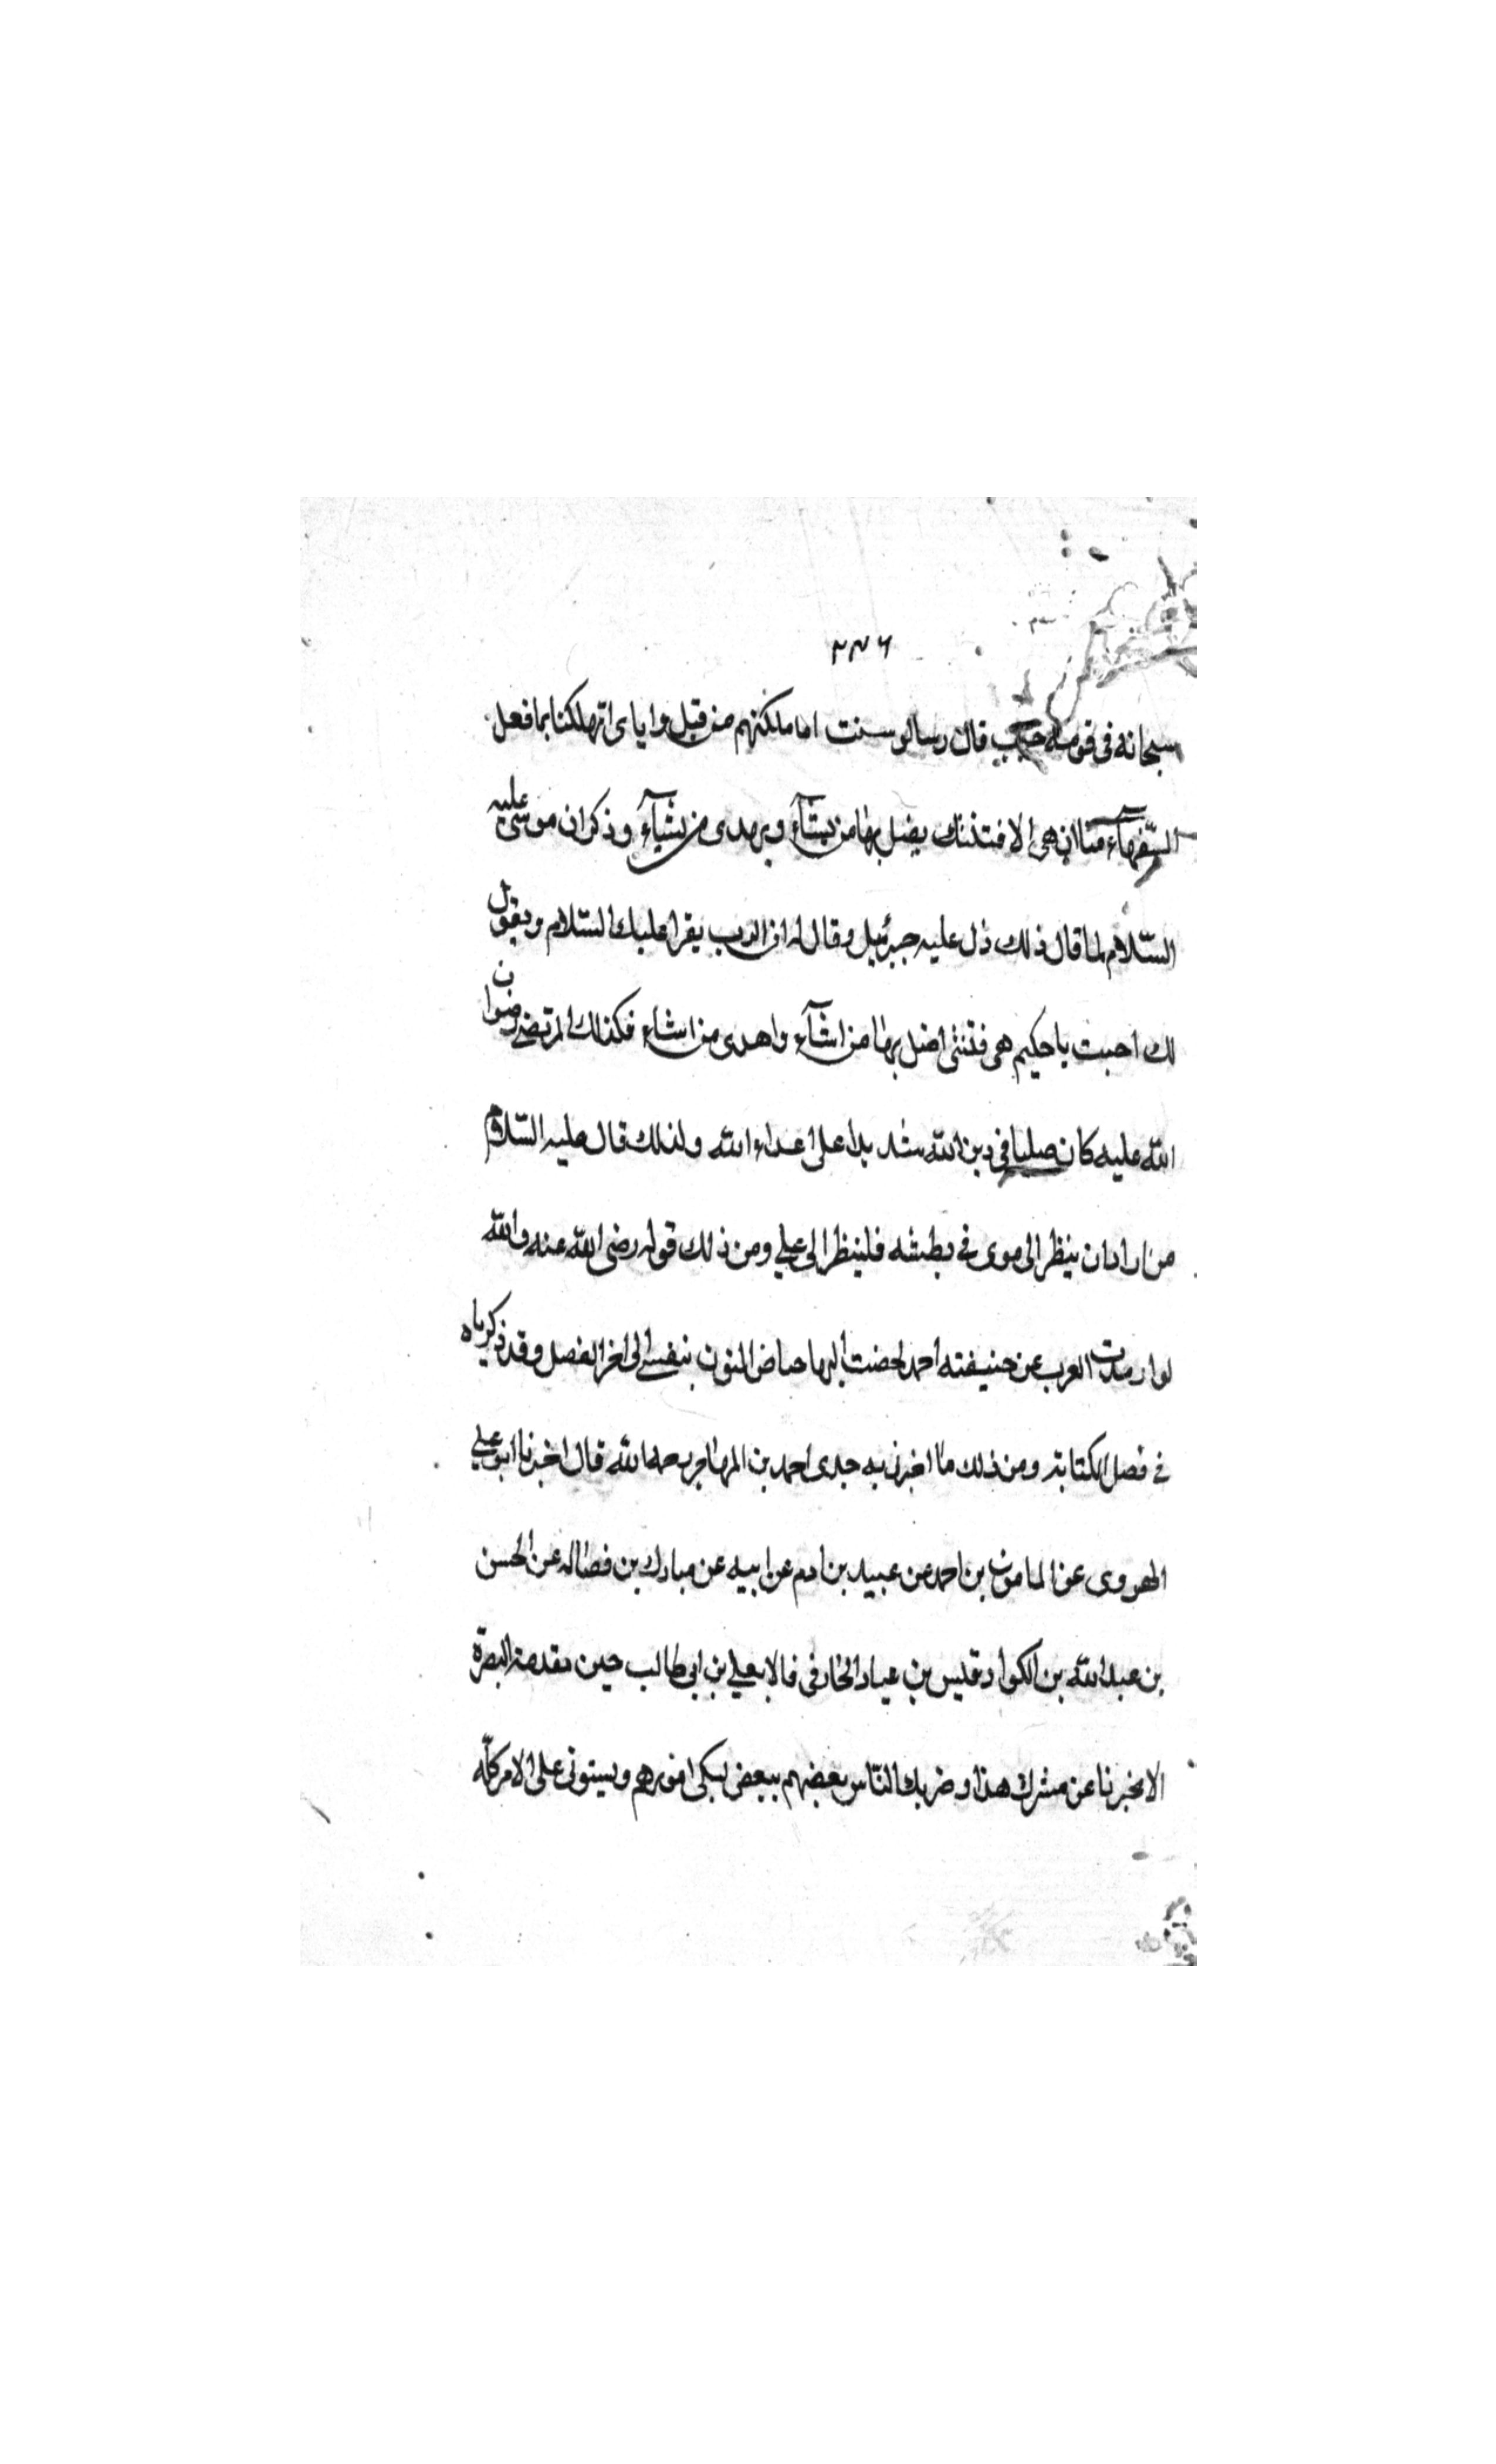 ٢٧٦
سبحانه فى قومه حيث قال رب لو شئت اهلكتهم من قبل واياى اتهلكنا بما فعل
السّفهآء منا ان هى الا فتنتك يضل بها من يشآء ويهدى من يشآء وذكر ان موسى عليه
السّلام لما قال ذلك نزل عليه جبرئيل وقال له ان الرب يقرا عليك السّلام ويقول
لك احبت يا حكيم هى فتنتى اضل بها من اشآء واهدى من اشاء فكذلك المرتضى رضوان
الله عليه كان صلبا فى دين الله شديدا على اعداء الله ولذلك قال عليه السّلام
من اراد ان ينظر الى موسى فى بطشه فلينظر الى على ومن ذلك قوله رضى الله عنه والله
لو ارتدت العرب عن حنيفته احمد لخضت اليها حياض المنون بنفسى الى اخر الفصل وقد ذكرناه
فى فصل الكتابة ومن ذلك ما اخبرنى به جدى احمد بن المهاجر رحمه الله قال اخبرنا ابو على
الهروى عن المامون بن احمد عن عبيد بن ادم عن ابيه عن مبارك بن فضاله عن الحسن
بن عبد الله بن الكوا وقيس بن عباد الخارفى قالا لعلى بن ابى طالب حين مقدمه البصرة
الا تخبرنا عن مسرك هذا وضربك النّاس بعضهم ببعض امورهم ويستوتى على الامر كلّه